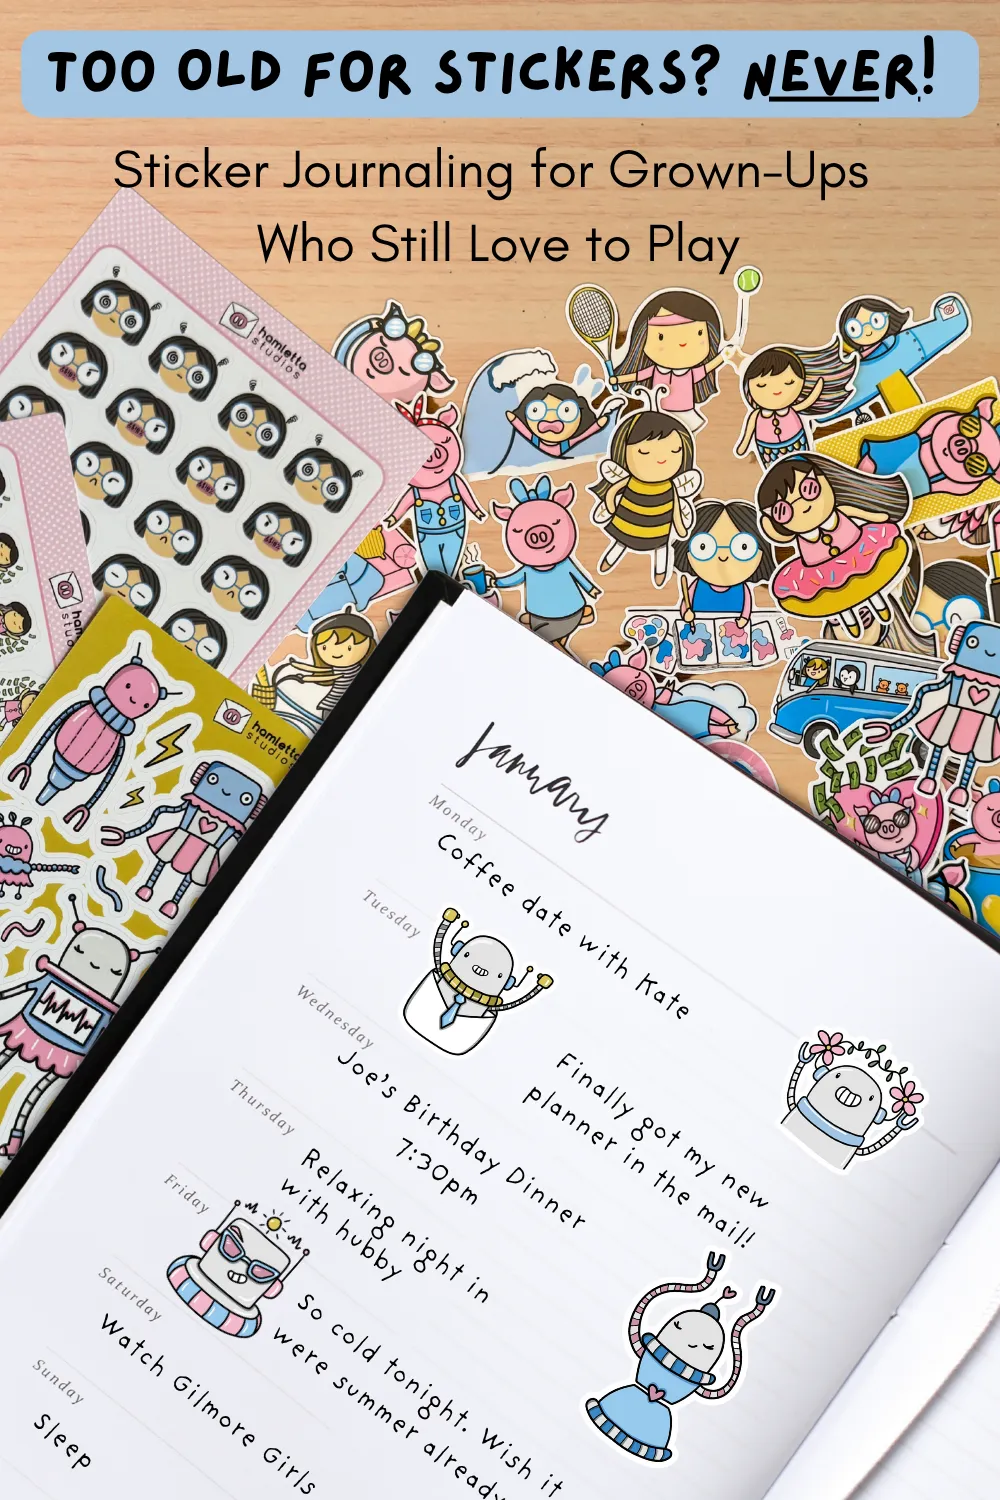 TOO OLD FOR STICKERS? NEVER!
Sticker Journaling for Grown-Ups
Who Still Love to Play
hamletta
studios
hamletta
studios
January
Monday
Coffee date with Kate
Tuesday
Finally got my new
planner in the mail!
Wednesday
Joe's Birthday Dinner
7:30pm
Thursday
Relaxing night in
with hubby
Friday
So cold tonight. Wish it
were summer already
Saturday
Watch Gilmore Girls
Sunday
Sleep